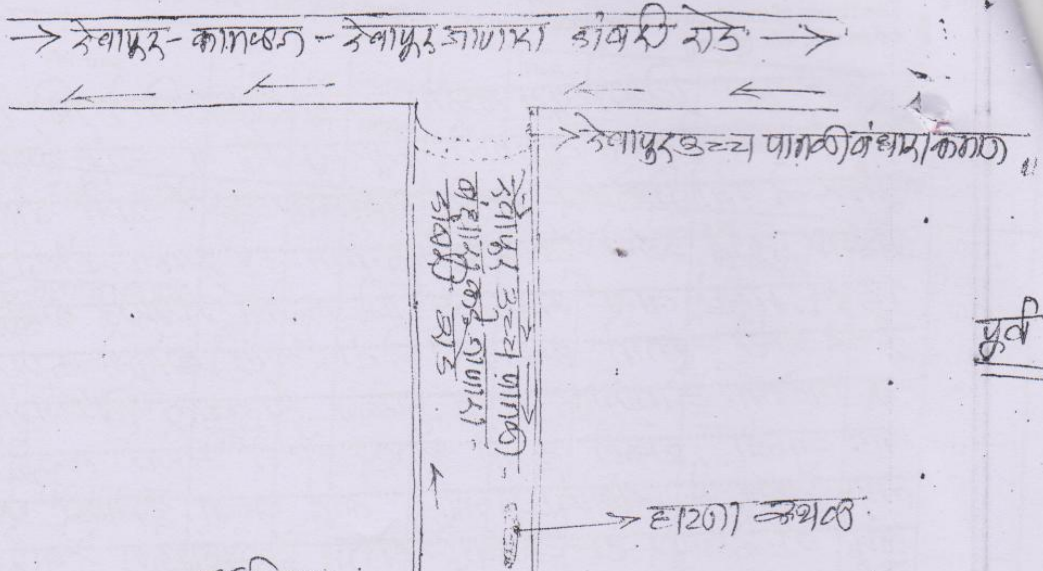 देवापूर - कामळज - देवापूर जाणारा डांबरी रोड
देवापूर उच्च पातळी बंधारा कमान
देवापूर उच्च पातळी
बंधाऱ्याकडे जाणारा
डांबरी रोड
पूर्व
घटना स्थळ